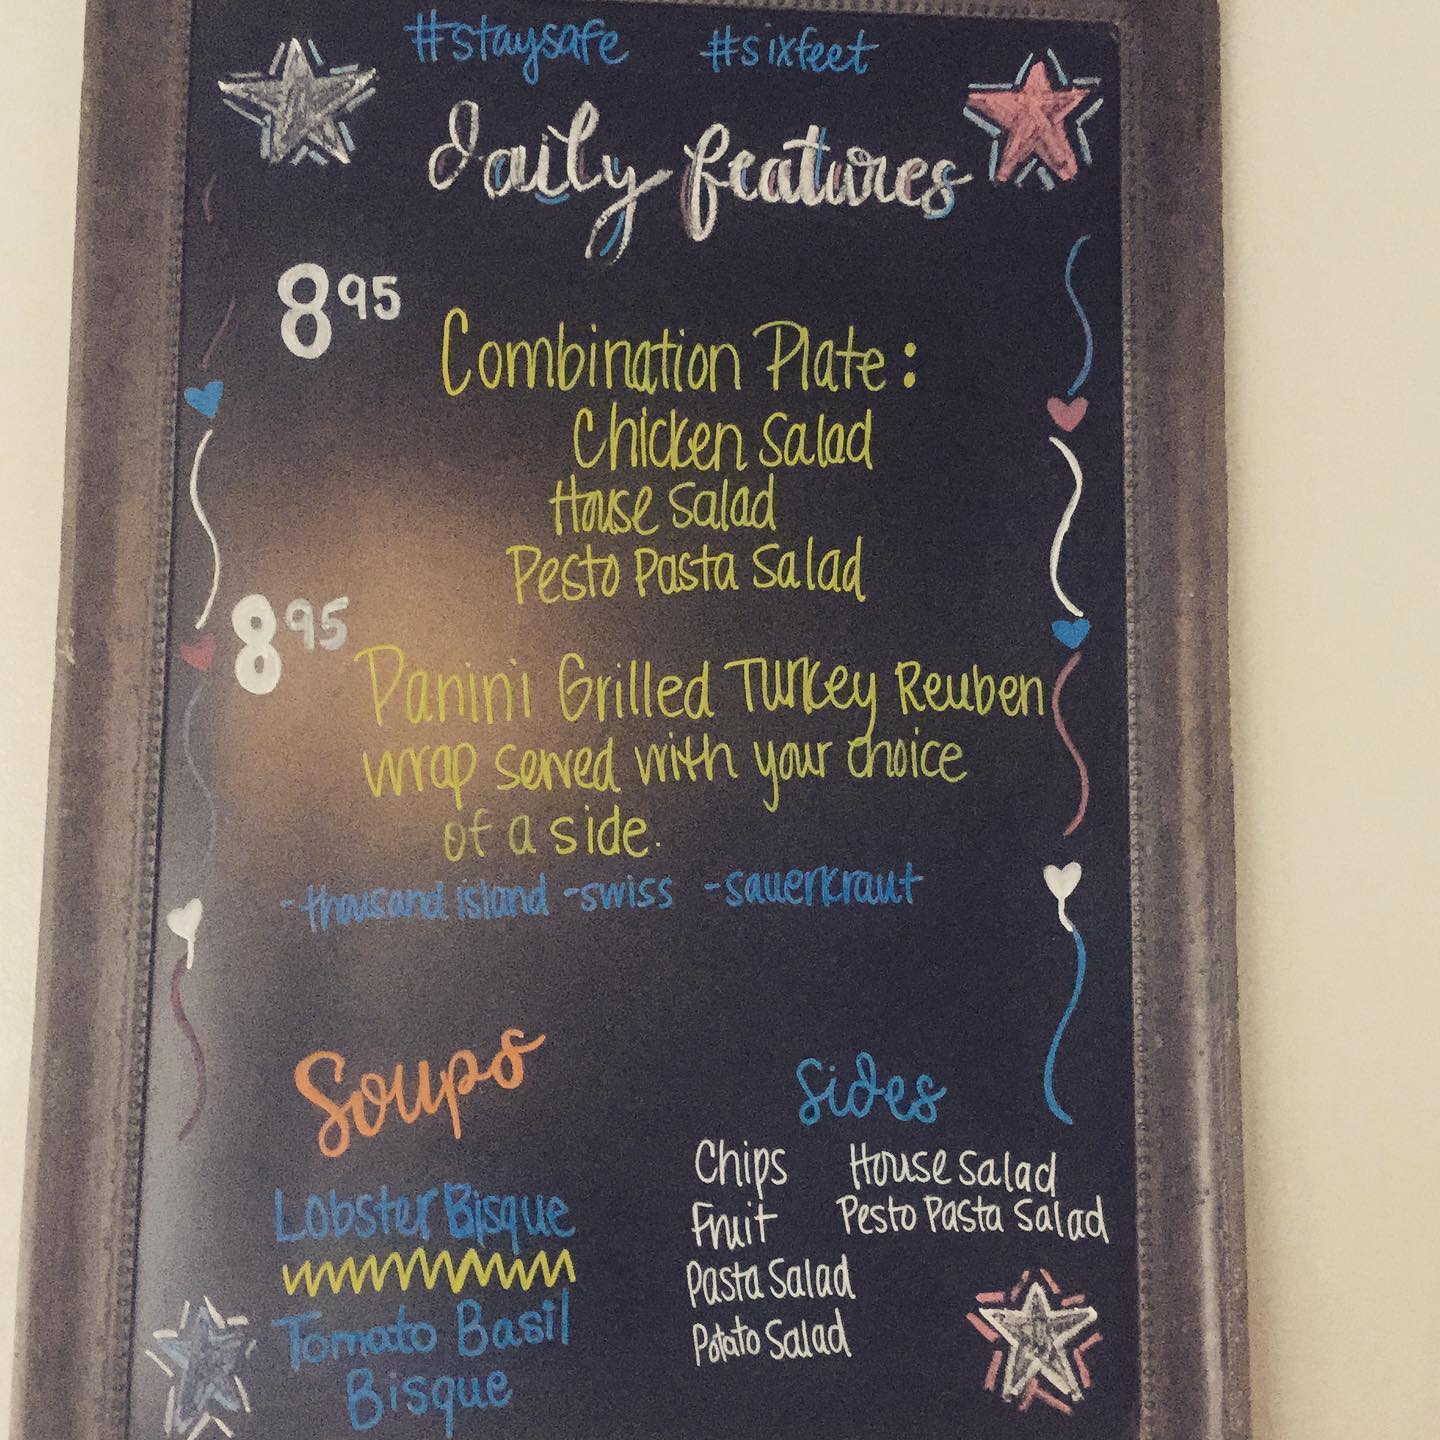 #staysafe #sixfeet
daily features
8 95
Combination Plate:
Chicken Salad
House Salad
Pesto Pasta Salad
8 95
Panini Grilled Turkey Reuben
wrap served with your choice
of a side.
-thousand island -swiss -sauerkraut
Soups
Lobster Bisque
Tomato Basil
Bisque
Sides
Chips House Salad
Fruit Pesto Pasta Salad
Pasta Salad
Potato Salad